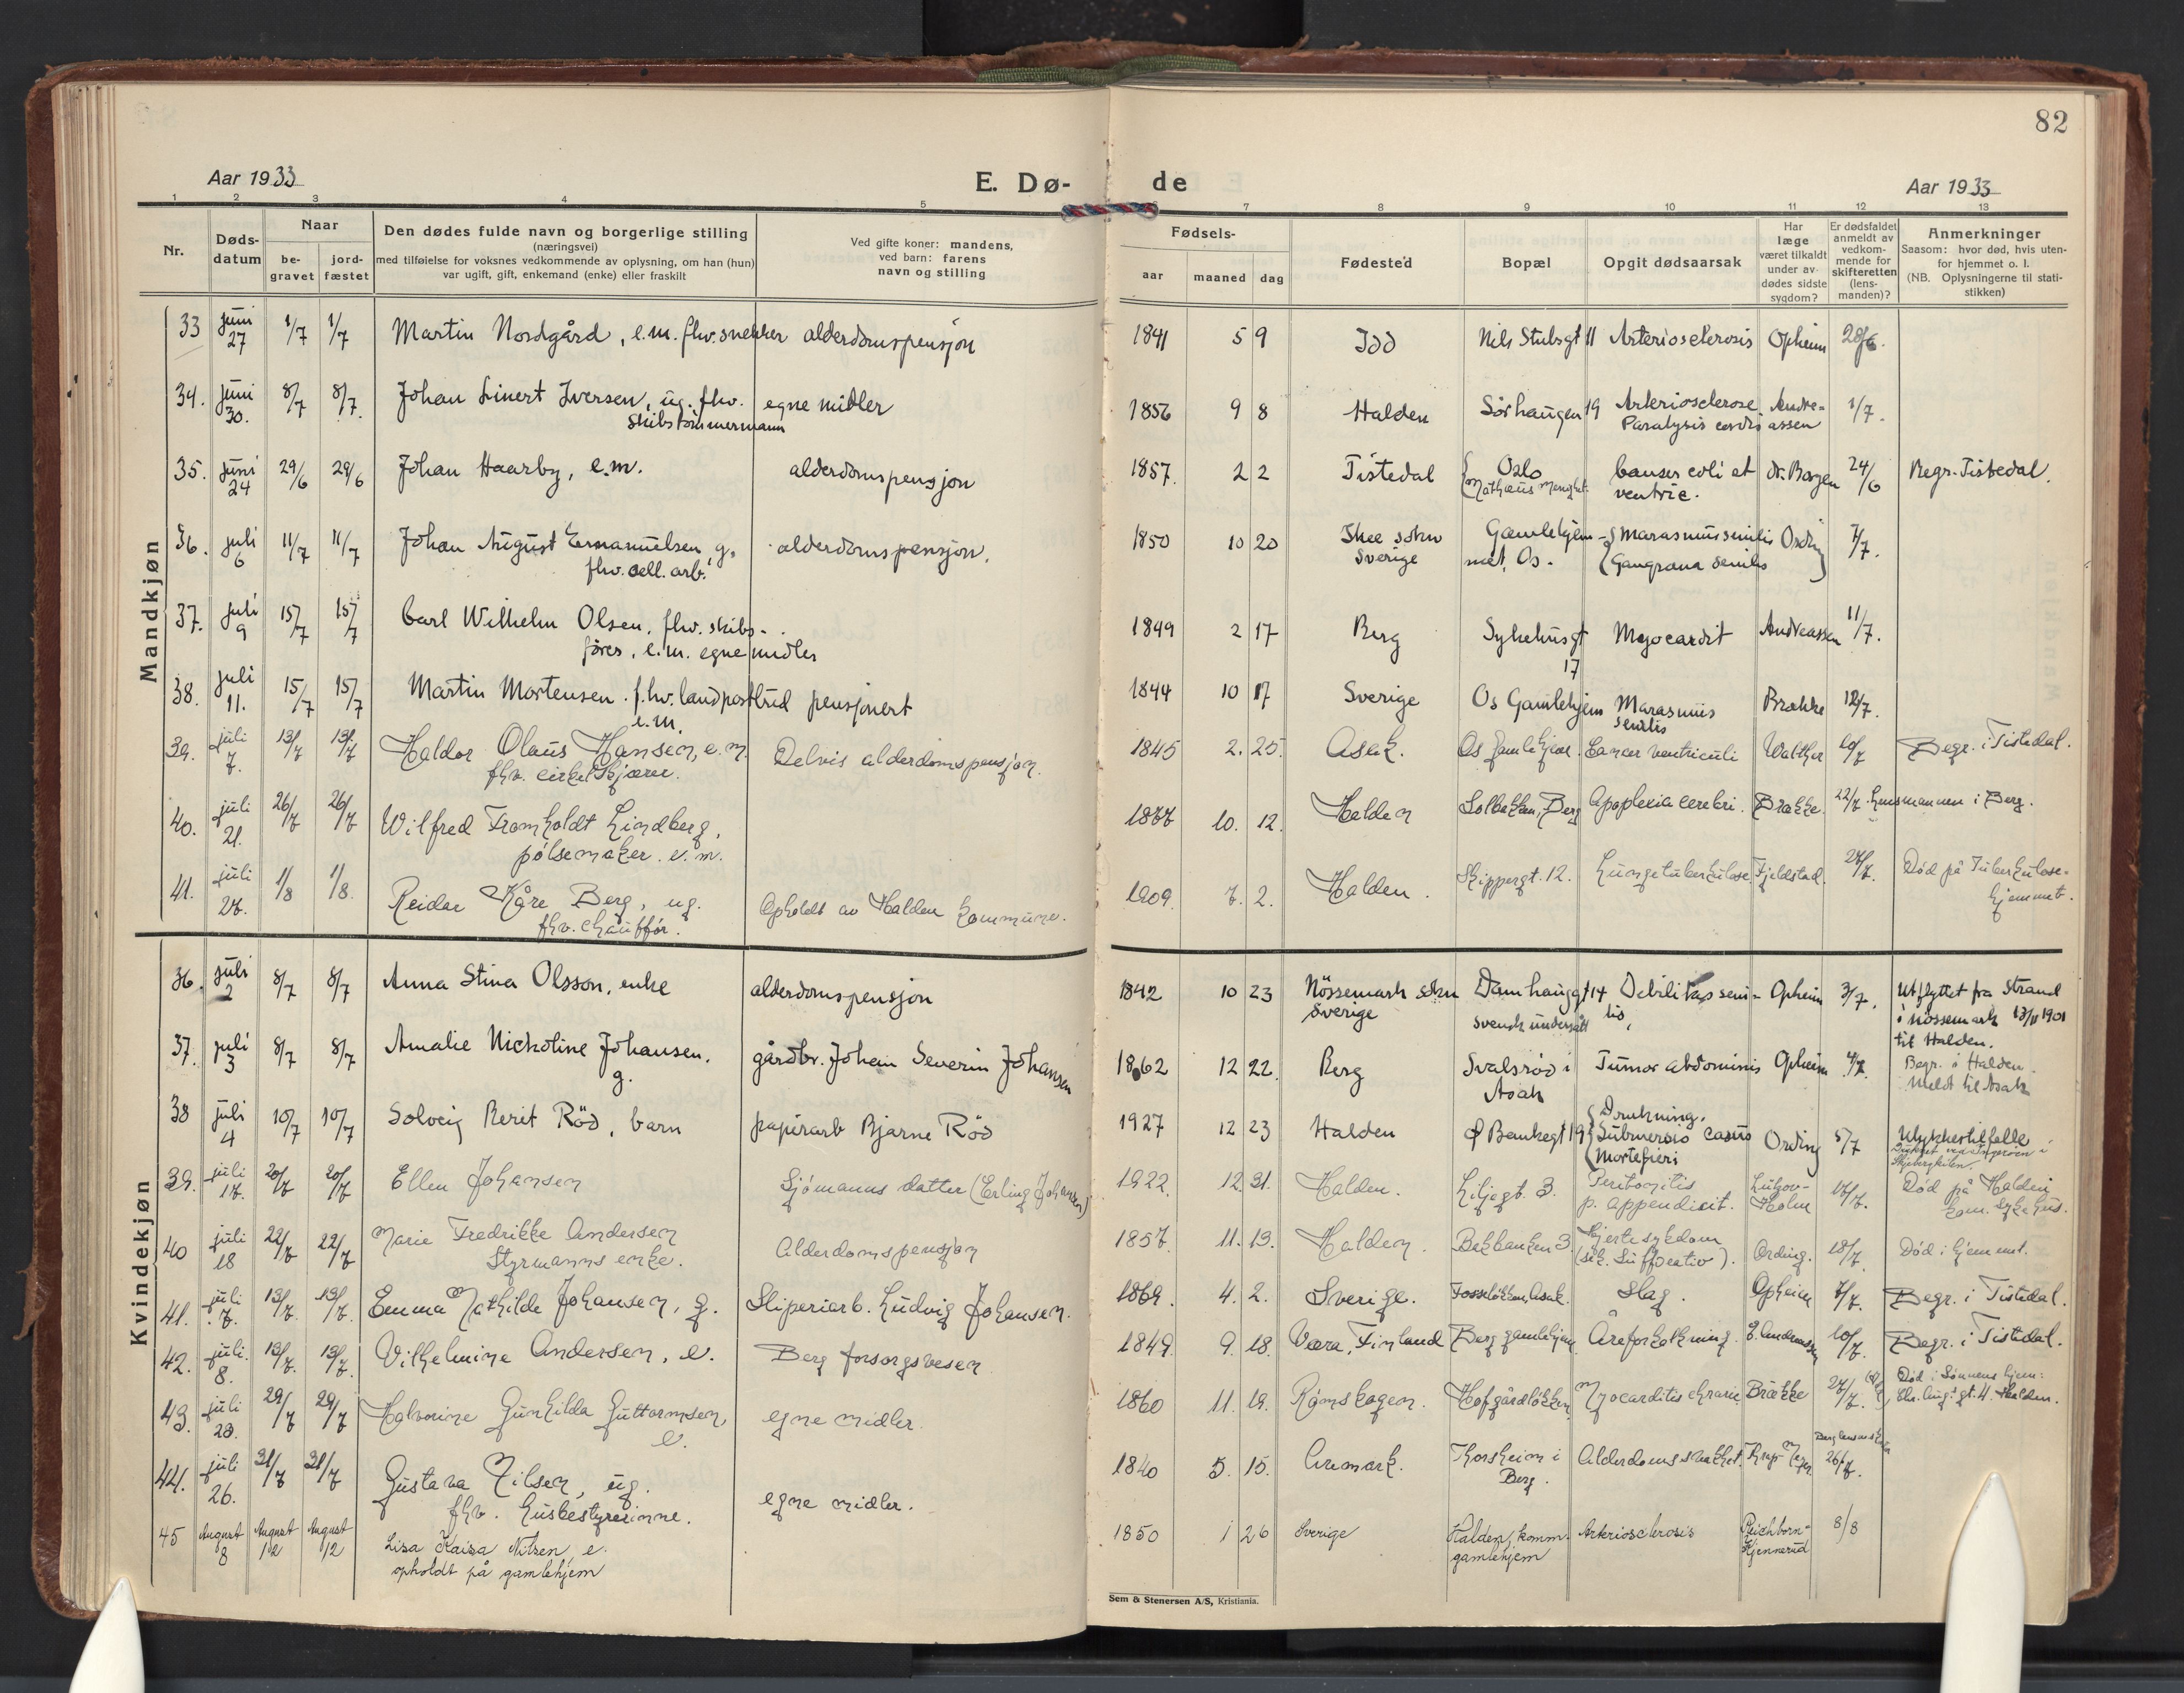 82
Aar 1933
E. Dø-
de
Aar 1933
1 2 3 4 5 6 7 8 9 10 11 12 13
Nr.
Døds-
datum
Naar
be-
gravet
jord-
fæstet
Den dødes fulde navn og borgerlige stilling
(næringsvei)
med tilføielse for voksnes vedkommende av oplysning, om han (hun)
var ugift, gift, enkemand (enke) eller fraskilt
Ved gifte koner: mandens,
ved barn: farens
navn og stilling
Fødsels-
aar maaned dag
Fødested
Bopæl
Opgit dødsaarsak
Har
læge
været tilkaldt
under av-
dødes sidste
sygdom?
Er dødsfaldet
anmeldt av
vedkom-
mende for
skifteretten
(lens-
manden)?
Anmerkninger
Saasom: hvor død, hvis uten-
for hjemmet o. l.
(NB. Oplysningerne til stati-
stikken)
Mandkjøn
33 juni 27 1/7 1/7 Martin Nordgård, e.m. fhv. snekker alderdomspensjon 1841 5 9 Idd Nils Stubsgt 11 Arteriosclerosis Opheim 28/6.
34. juni 30. 8/7 8/7. Johan Linert Iversen, ug. fhv. egne midler 1856 9 8 Halden Sørhaugen 19 Arteriosclerose Andre- 1/7.
skibstømmermann Paralysis cordis assen
35. juni 24 29/6 29/6 Johan Haarby, e.m. alderdomspensjon 1857. 2 2 Tistedal Oslo cancer coli et dr. Borgen 24/6 Begr. Tistedal.
Mathæus menighet ventric.
36. juli 6 11/7 11/7 Johan August Emanuelsen, g. alderdomspensjon. 1850 10 20 Skee sokn Gamlehjem- Marasmus senilis Ording 7/7.
fhv. cell. arb. Sverige met, Os. Gangræna senilis
37. juli 9 15/7 15/7 Carl Wilhelm Olsen, fhv. skibs- 1849 2 17 Berg Sykehusgt Myocardit Andreassen 11/7.
fører, e.m. egne midler 17
38. juli 11. 15/7 15/7 Martin Mortensen. f.hv. landpostbud pensjonert 1844 10 17 Sverige Os Gamlehjem Marasmus Brække 12/7.
e.m. senilis
39. juli 7. 13/7 13/7 Haldor Olaus Hansen, e.m. Delvis alderdomspensjon. 1845 2. 25. Asak. Os gamlehjem. Cancer ventriculi Walther 10/7 Begr. i Tistedal.
fhv. cirkelskjærer.
40. juli 21. 26/7 26/7 Wilfred Fromholdt Lindberg, 1877 10. 12. Halden Solbakken, Berg Apoplexia cerebri. Brække. 22/7. Lensmannen i Berg.
pølsemaker. e.m.
41. juli 27. 1/8 1/8. Reidar Kåre Berg, ug. Opholdt av Halden kommune. 1909. 7. 2. Halden. Skippergt. 12. Lungetuberkulose Fjeldstad. 28/7. Død på Tuberkulose-
fhv. chauffør. hjemmet.
Kvindekjøn
36. juli 2 8/7 8/7 Anna Stina Olsson, enke alderdomspensjon 1842 10 23 Nössemark sokn Damhaugt 14 Debilitas seni- Opheim 3/7. Utflyttet fra Strand
Sverige svensk undersått lis, i Nössemark 13/11 1901
til Halden.
37. juli 3 8/7 8/7 Amalie Nicholine Johansen. gårdbr. Johan Severin Johansen 1862 12 22. Berg Svalsrød i Tumor abdominis Opheim 4/7. Begr. i Halden.
g. Asak Meldt til Asak
38 juli 4 10/7 10/7 Solveig Berit Röd, barn papirarb Bjarne Röd 1927 12 23 Halden Ø Bankegt 19 Drukning. Ording 5/7 Ulykkestilfelle
Submersio casus
Mortefieri
39. juli 17. 20/7 20/7 Ellen Johansen Sjömanns datter (Erling Johansen) 1922. 12. 31. Halden. Liljegt. 3. Peritonitis Lützow- 18/7. Død på Halden
p. appendicit. Holm kom. sykehus.
40 juli 18 22/7 22/7 Marie Fredrikke Andersen Alderdomspensjon 1857. 11. 13. Halden. Bakbanken 3 Hjertesykdom Ording. 18/7. Død i hjemmet.
Styrmanns enke.
41. juli 7. 13/7. 13/7. Emma Mathilde Johansen, g. Sliperiarb. Ludvig Johansen. 1869. 4. 2. Sverige. Fosseløkken, Asak. Slag. Opheim 7/7. Begr. i Tistedal.
42. juli. 8. 13/7. 13/7. Vilhelmine Andersen, e. Berg forsorgsvesen 1849. 9. 18. Vøra, Finland Berg gamlehjem Åreforkalkning. E. Andreassen 10/7. Begr. i Tistedal.
43. juli 23. 29/7 29/7 Halvorine Gunhilda Guttormsen, egne midler. 1860 11. 19. Rømskogen. Hofgårdløkken Myocarditis chronic Brække 24/7. Død i Sønnens hjem:
e. gt. 4 Halden.
44. juli 26. 31/7 31/7 Gustava Nilsen, ug. egne midler. 1840 5. 15. Aremark. Thorsheim i Alderdomssvakhet. 26/7.
fhv. husbestyrerinne. Berg.
45 August 8 August 12 August 12 Lisa Kaisa Nilsen, e. 1850 1 26 Sverige Halden komm. Arteriosclerosis Reichborn- 8/8
opholdt på gamlehjem gamlehjem Kjennerud
Sem & Stenersen A/S, Kristiania.